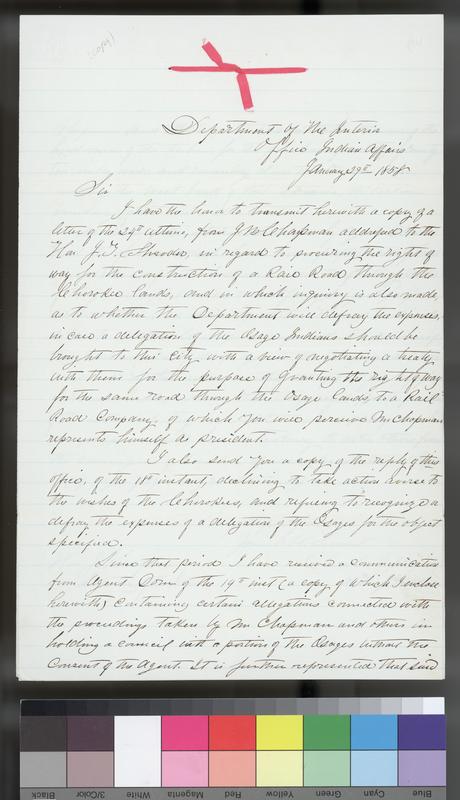 (Copy)
Department of the Interior
Office Indian Affairs
January 29th 1858
Sir
I have the honor to transmit herewith a copy of a
letter of the 24th ultimo, from J N Chapman addressed to the
Hon J. in regard to procuring the right of
way for the construction of a Rail Road through the
Cherokee lands, and in which inquiry is also made,
as to whether the Department will defray the expenses,
in case a delegation of the Osage Indians should be
brought to this City with a view of negotiating a treaty
with them for the purpose of granting the right of way
for the same road through the Osage lands, to a Rail
Road Company, of which you will perceive Mr Chapman
represents himself as president.
I also send you a copy of the reply of this
office, of the 11th instant, declining to take action adverse to
the wishes of the Cherokees, and refusing to recognize or
defray the expenses of a delegation of the Osages for the object
specified.
Since that period I have received a communication
from Agent Dorn of the 19th inst (a copy of which I enclose
herewith) containing certain allegations connected with
the proceedings taken by Mr Chapman and others in
holding a council with a portion of the Osages without the
consent of the Agent. It is further represented that said
Black
3/Color
White
Magenta
Red
Yellow
Green
Cyan
Blue